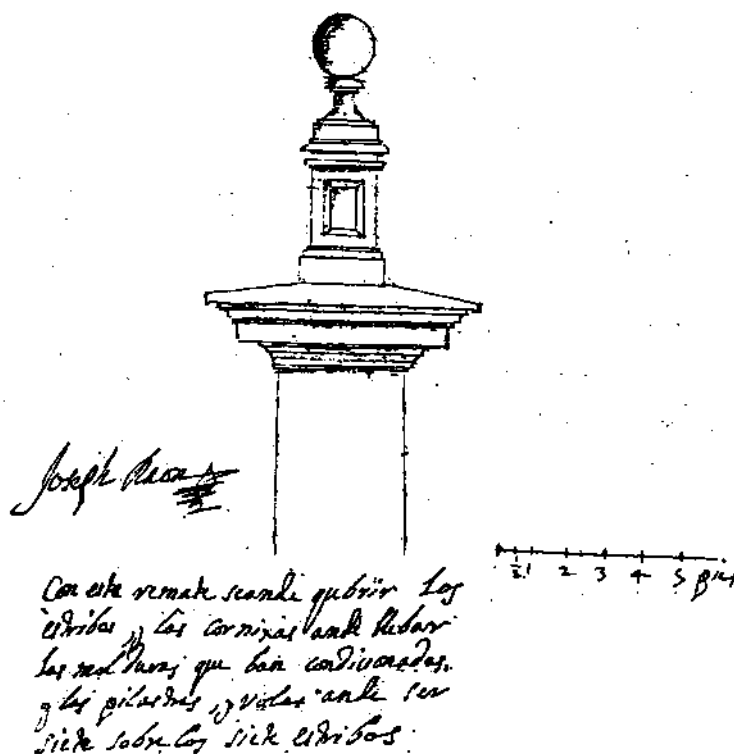 Joseph Raon
1 2 3 4 5 pies
Con este remate seande qubrir Los
estribos, y Las cornixas ande llebar
las molduras que ban condicionadas.
y las pilastras, y volas ande ser
siete sobre los siete estribos.